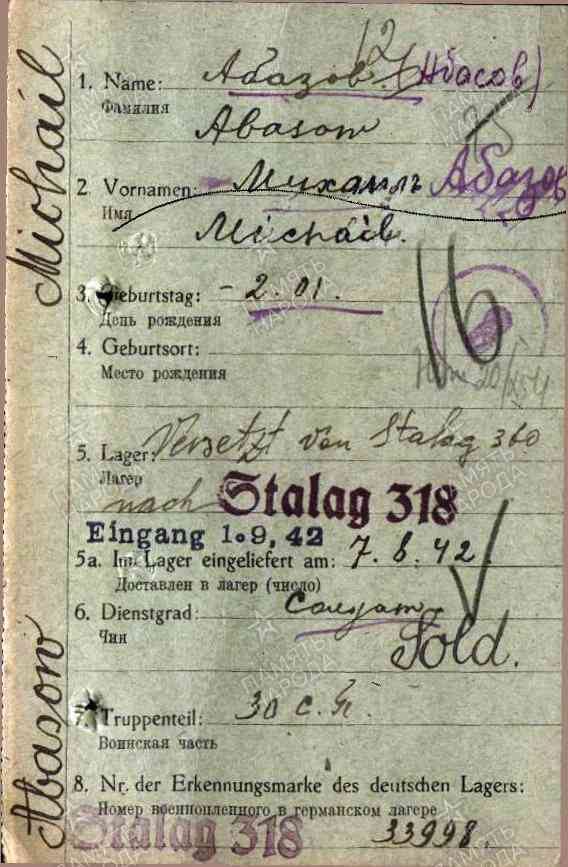 12
1. Name: Абазов (Абасов)
Фамилия
Abasow
2 Vornamen: Михаилъ Абазов
Имя
Michail.
3. Geburtstag: - 2. 01.
День рождения
16
4. Geburtsort:
Место рождения
5. Lager: Versetzt von Stalag 360
Лагерь
nach Stalag 318
Eingang 1.9,42
5a. Im Lager eingeliefert am: 7. 6. 42
Доставлен в лагерь (число)
6. Dienstgrad: Солдат
Чин
Sold.
7. Truppenteil: 30 с. п.
Воинская часть
8. Nr. der Erkennungsmarke des deutschen Lagers:
Номер военнопленного в германском лагере
Stalag 318 33998.
Michail
Abasow
ПАМЯТЬ НАРОДА